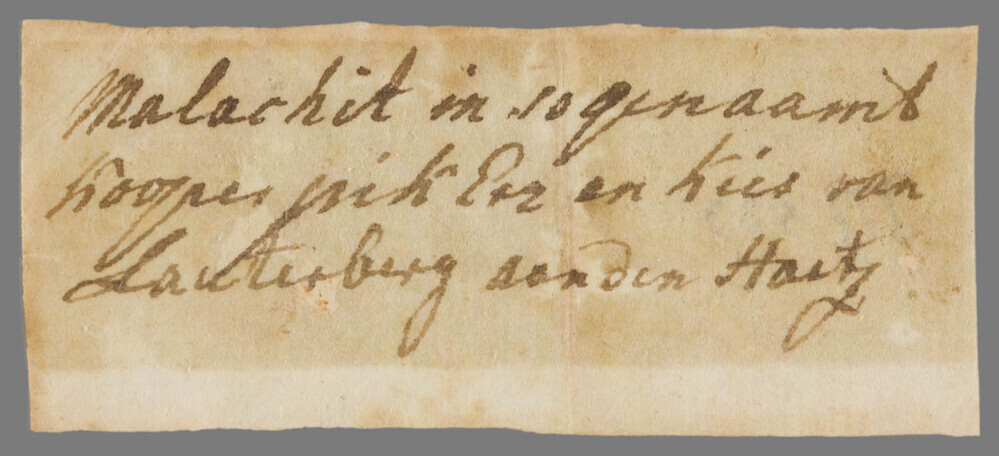 Malachit in sogenaamt
kooper pik Erz en kies van
Lauterberg aan den Hartz